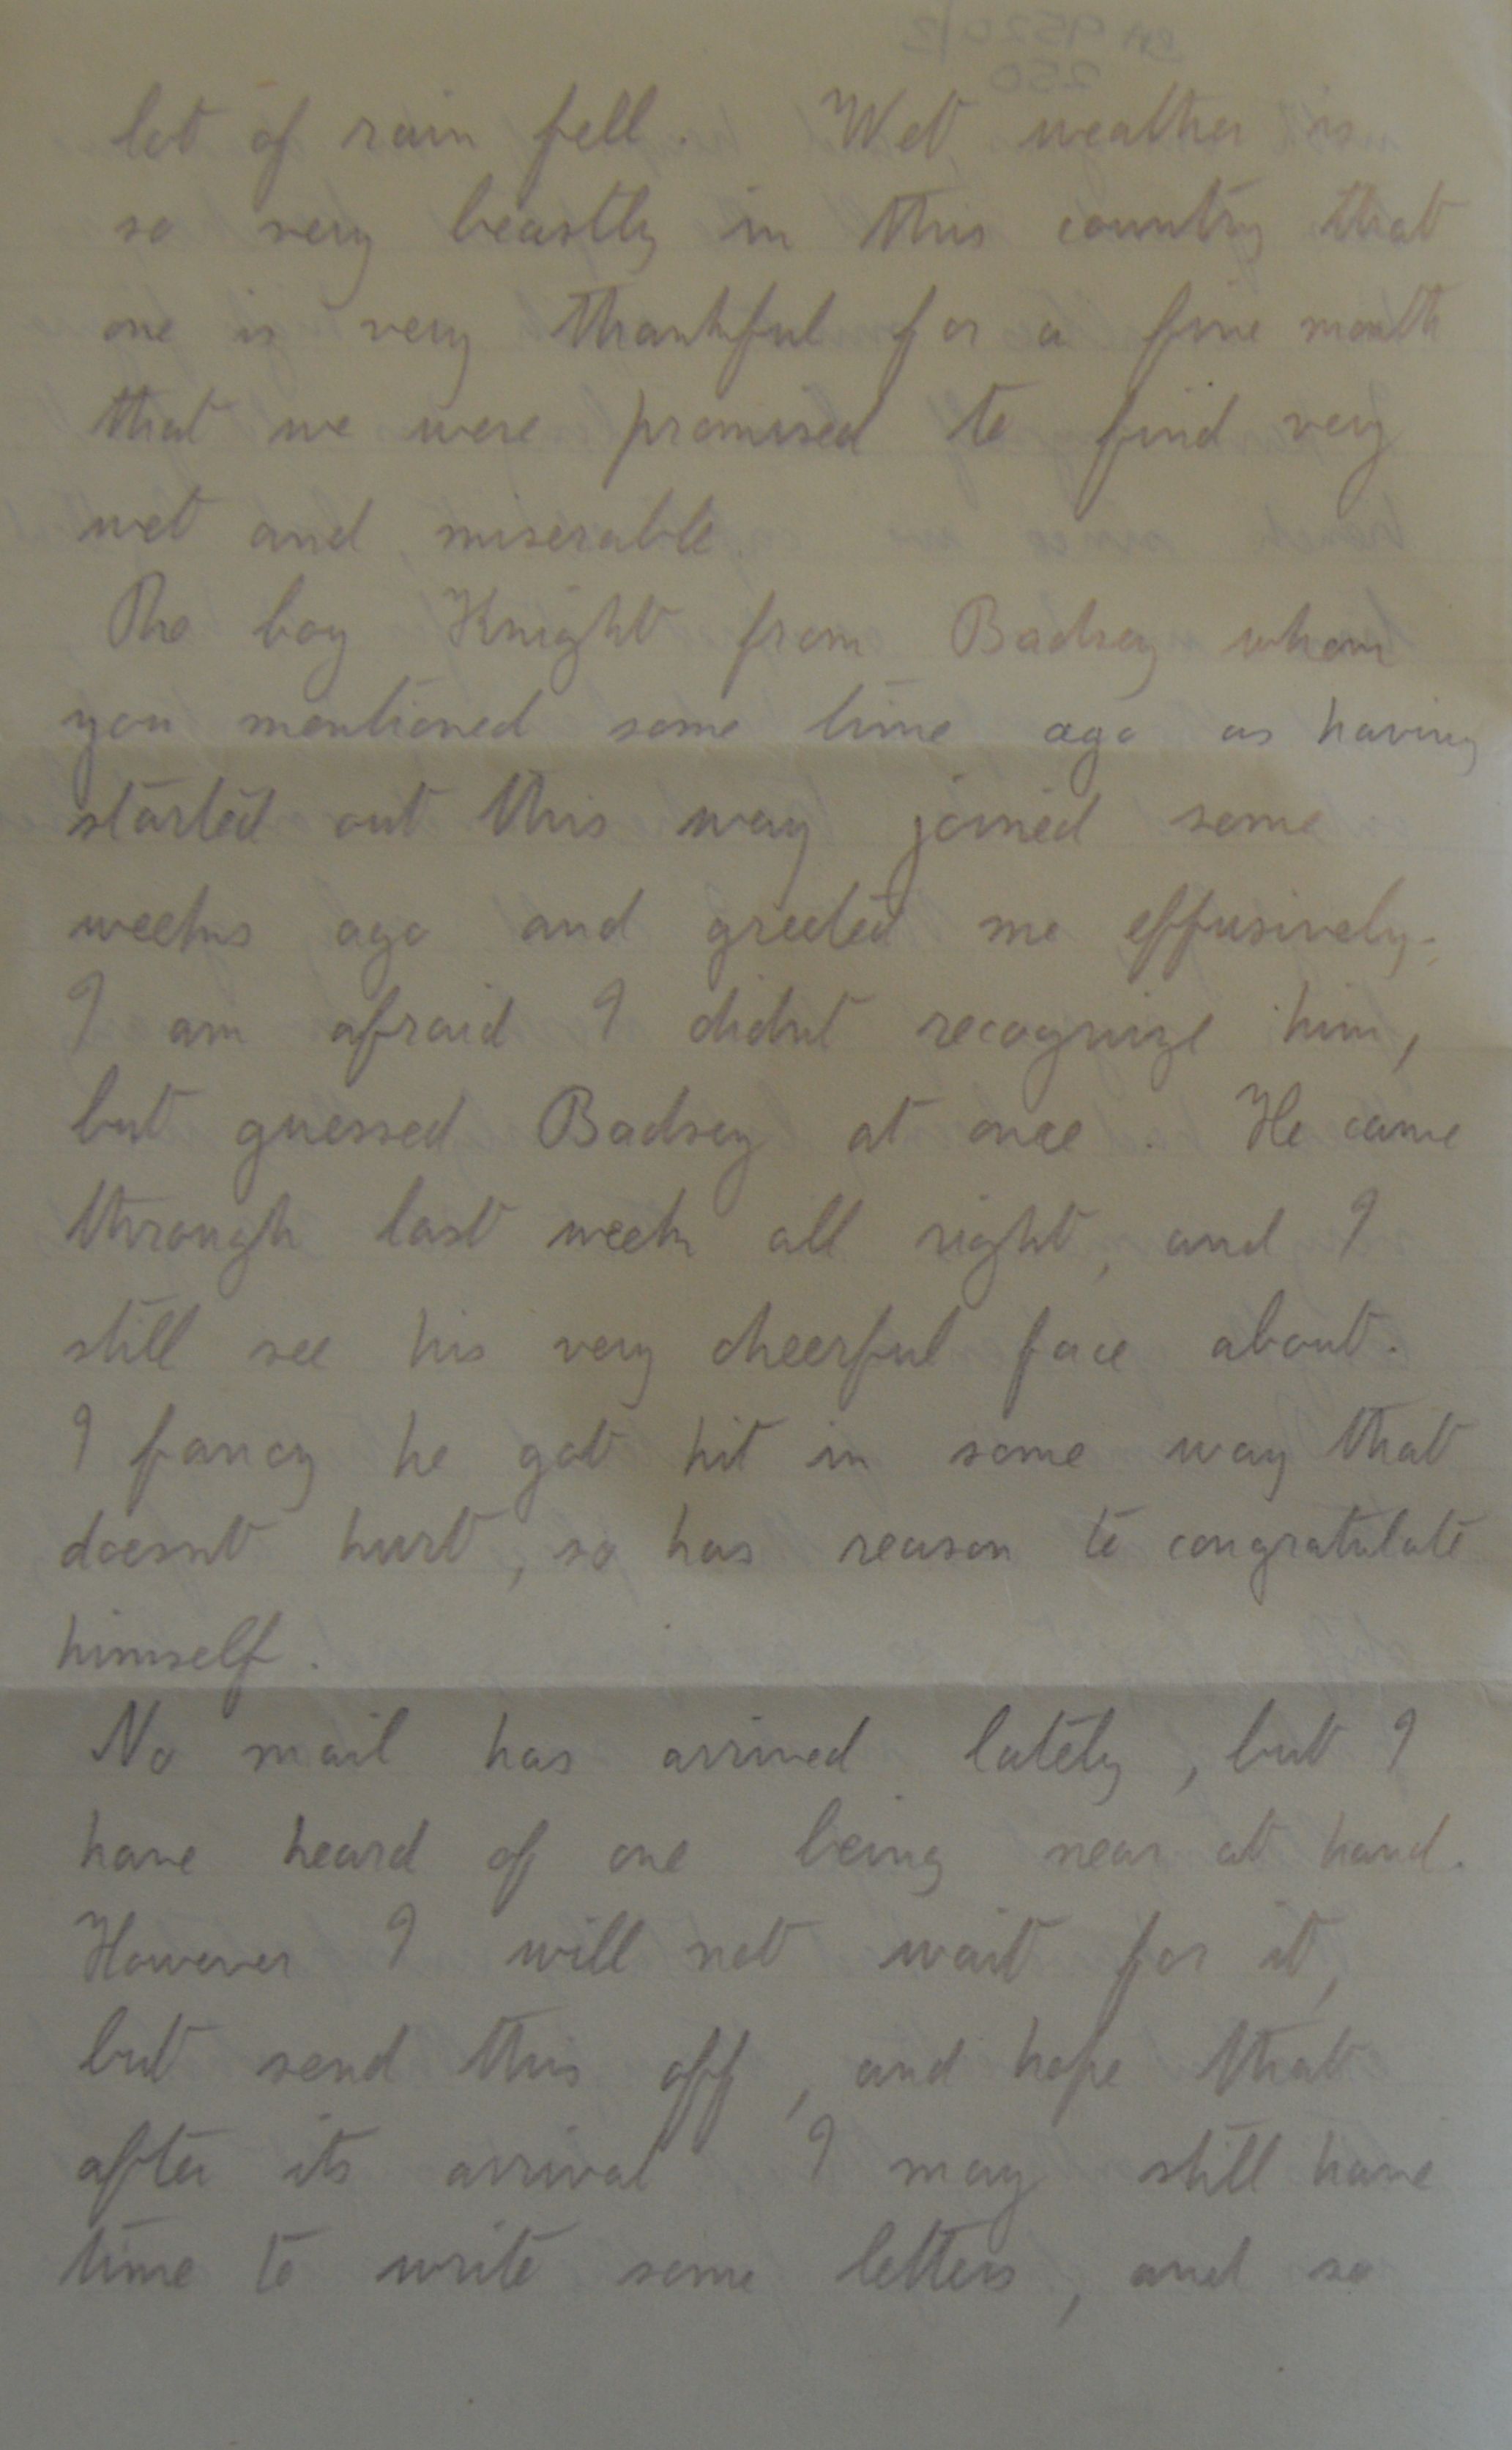 lot of rain fell. Wet weather is
so very beastly in this country that
one is very thankful for a fine month
that we were promised to find very
wet and miserable.
The boy Knight from Badsey whom
you mentioned some time ago as having
started out this way joined some
weeks ago and greeted me effusively.
I am afraid I didnt recognize him,
but guessed Badsey at once. He came
through last week all right, and I
still see his very cheerful face about.
I fancy he got hit in some way that
doesnt hurt, so has reason to congratulate
himself.
No mail has arrived lately, but I
have heard of one being near at hand.
However I will not wait for it,
but send this off, and hope that
after its arrival I may still have
time to write some letters, and so